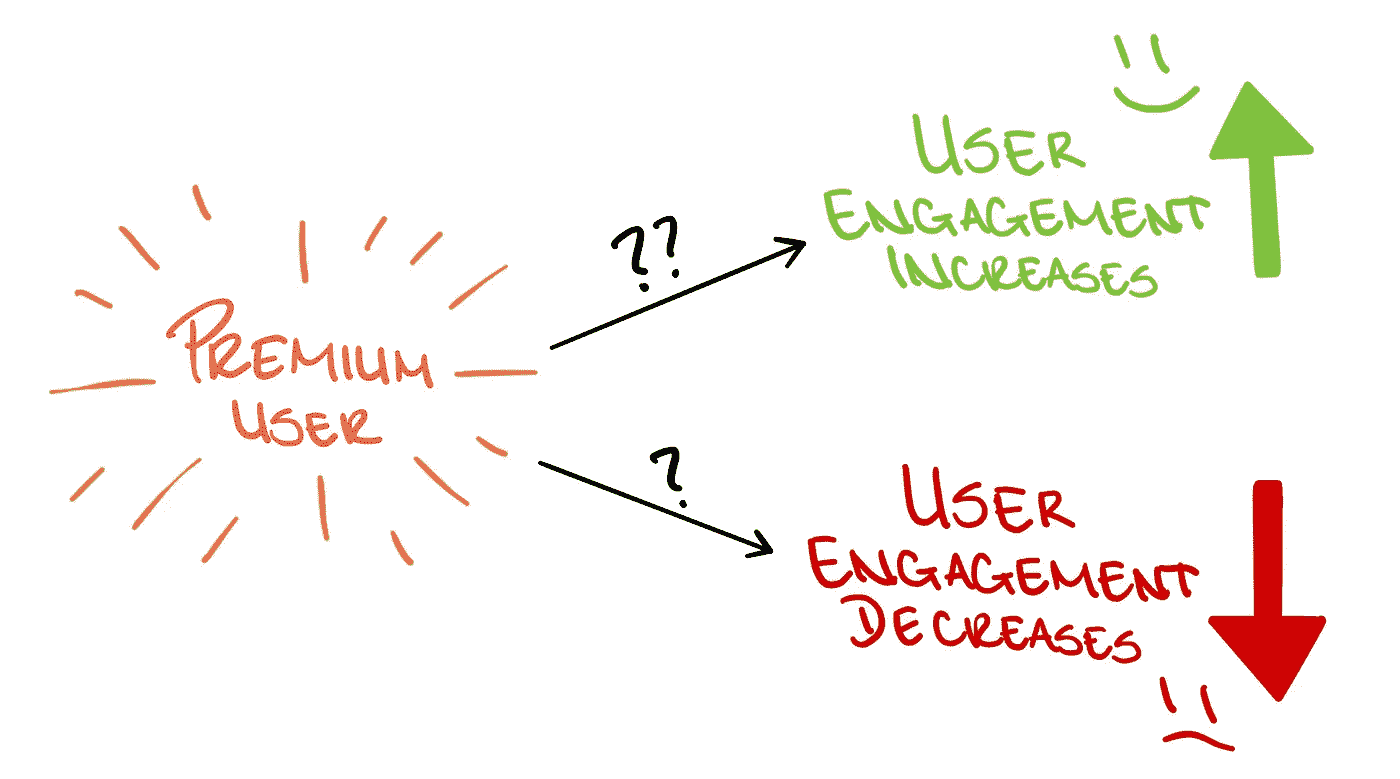 PREMIUM
USER
??
USER
ENGAGEMENT
INCREASES
?
USER
ENGAGEMENT
DECREASES